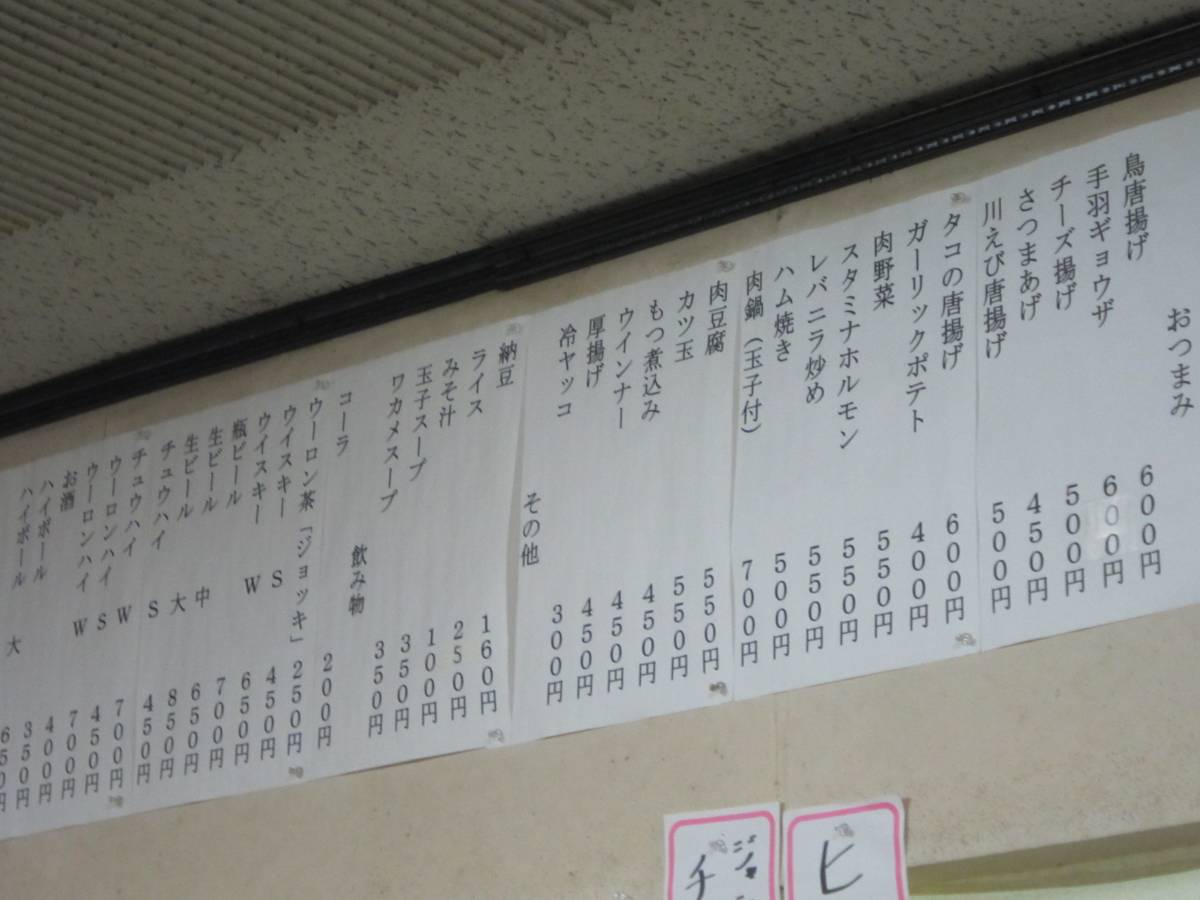 おつまみ
鳥唐揚げ 600円
手羽ギョウザ 600円
チーズ揚げ 500円
さつまあげ 450円
川えび唐揚げ 500円
タコの唐揚げ 600円
ガーリックポテト 400円
肉野菜 550円
スタミナホルモン 550円
レバニラ炒め 550円
ハム焼き 500円
肉鍋（玉子付） 700円
肉豆腐 550円
カツ玉 550円
もつ煮込み 450円
ウインナー 450円
厚揚げ 450円
冷ヤッコ 300円
その他
納豆 160円
ライス 250円
みそ汁 100円
玉子スープ 350円
ワカメスープ 350円
飲み物
コーラ 200円
ウーロン茶「ジョッキ」 250円
ウイスキー S 450円
ウイスキー W 650円
瓶ビール 700円
生ビール 中 650円
生ビール 大 850円
チュウハイ S 450円
チュウハイ W 700円
ウーロンハイ S 450円
ウーロンハイ W 700円
お酒 400円
ハイボール 350円
ハイボール 大 650円
ヒ
ジャ
チ